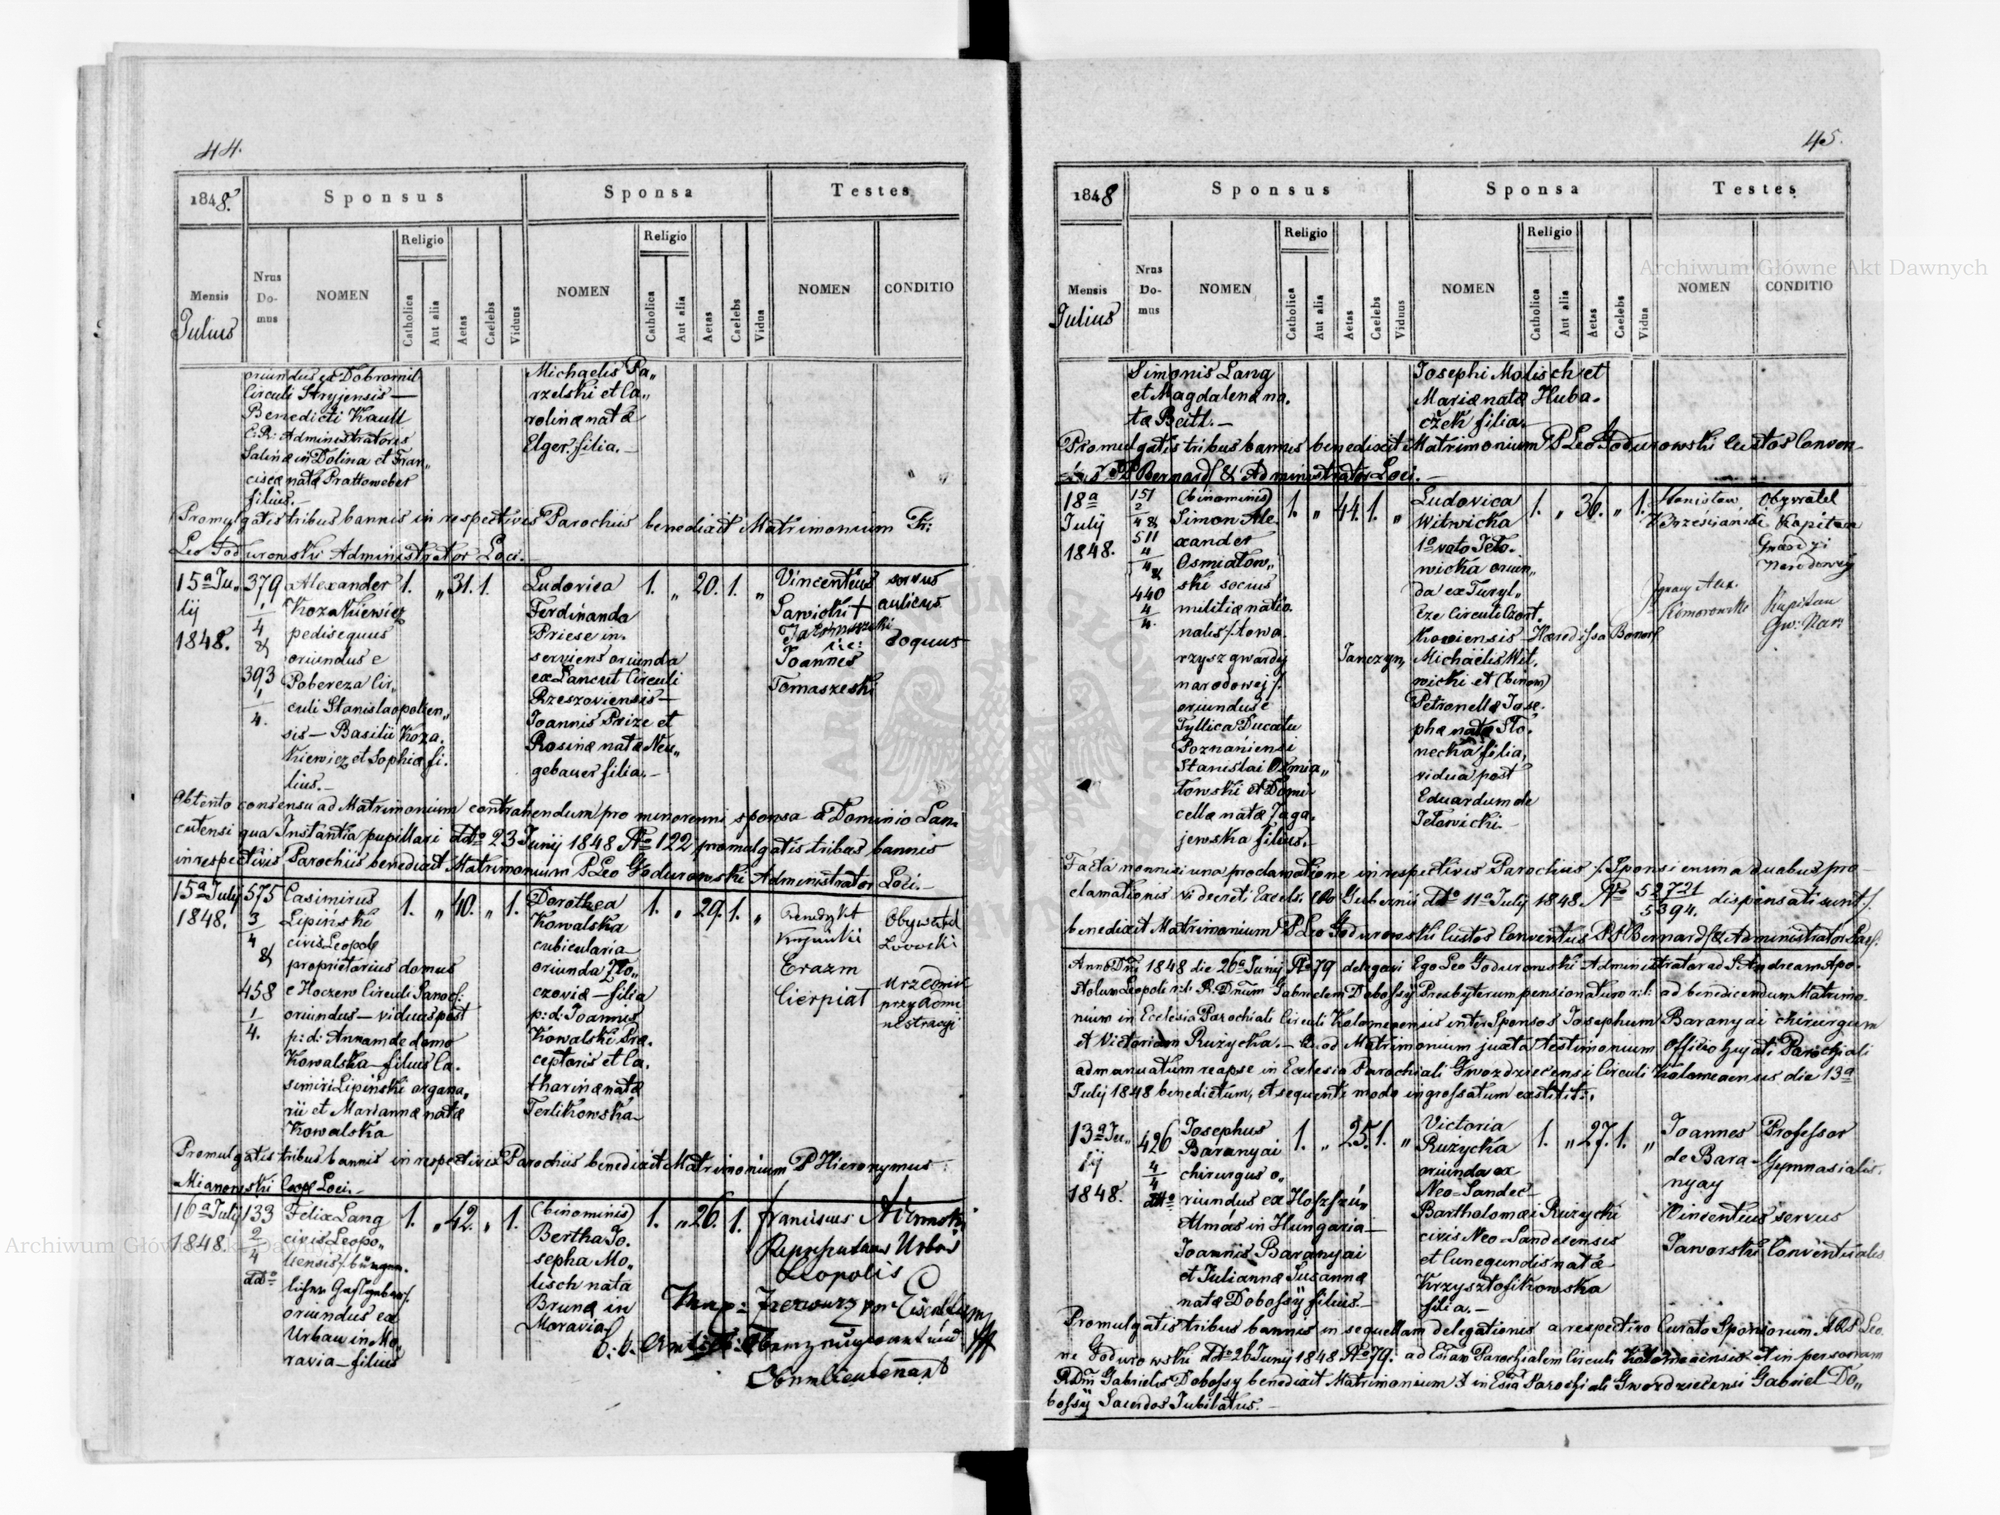 44.
1848.
Sponsus
Sponsa
Testes
Mensis
Julius
Nrus Do-mus
NOMEN
Religio
Catholica
Aut alia
Aetas
Caelebs
Viduus
NOMEN
Religio
Catholica
Aut alia
Aetas
Caelebs
Vidua
NOMEN
CONDITIO
oriundus ex Dobromil
Circuli Stryjensis —
Benedicti Kautt
C: R: Administratoris
Salinæ in Dolina et Fran„
ciscæ natæ Prattoweber
filius. —
Michaelis Pa„
rzelski et Ca„
rolinæ natæ
Elger filia. —
Promulgatis tribus bannis in respectivis Parochiis benedixit Matrimonium Fr:
Leo Godurowski Administrator Loci. —
15a Ju„
lij
1848.
379
1
4
&
393
1
4.
Alexander
Kozakiewicz
pedisequus
oriundus e
Pobereza Cir„
culi Stanislaopolien„
sis — Basilii Koza.
kiewicz et Sophiæ fi.
lius. —
1. „ 31. 1.
Ludovica
Ferdinanda
Priese in.
serviens oriunda
ex Lancut Circuli
Rzeszoviensis —
Joannis Prize et
Rosinæ natæ Neu„
gebauer filia. —
1. „ 20. 1. „
Vincentius
Sawicki +
Joannes
Tomaszeski
servus
aulicus
coquus
Obtento consensu ad Matrimonium contrahendum pro minorenni sponsa a Dominio Lan.
cutensi qua Instantia pupillari ddto 23 Junij 1848 No 122 promulgatis tribus bannis
in respectivis Parochiis benedixit Matrimonium P Leo Godurowski Administrator Loci. —
15a July
1848.
575
3
4
&
458
1
4.
Casimirus
Lipiński
civis Leopol:
proprietarius domus
e Hoczew Circuli Sanoc:
oriundus — viduus post
p: d: Annam de domo
Kowalska — filius Ca.
simiri Lipiński organa.
rii et Mariannæ natæ
Kowalska
1. „ 40. „ 1.
Dorothea
Kowalska
cubicularia
oriunda Zło„
czoviæ — filia
p: d: Joannis
Kowalski Præ.
ceptoris et Ca.
tharinæ natæ
Terlikowska —
1. „ 29. 1. „
Benedykt
Erazm
Cierpiat
Obywatel
Lwowski
urzednik
przy Admi
nistracyi
Promulgatis tribus bannis in respectivis Parochiis benedixit Matrimonium P Hieronymus
Mianowski Coop Loci. —
16a July
1848.
133
2
4
ddo
Felix Lang
civis Leopo„
liensis
oriundus ex
Urbau in Mo„
ravia — filius
1. „ 42. „ 1.
(binominis)
Bertha Jo.
sepha Mo„
lisch nata
Brunæ in
Moravia
1. „ 26. 1.
Franciscus
Repræsentans Urbis
Leopolis
45.
1848
Sponsus
Sponsa
Testes
Mensis
Julius
Nrus Do-mus
NOMEN
Religio
Catholica
Aut alia
Aetas
Caelebs
Viduus
NOMEN
Religio
Catholica
Aut alia
Aetas
Caelebs
Vidua
NOMEN
CONDITIO
Simonis Lang
et Magdalenæ na.
tæ Beitl. —
Josephi Molisch et
Mariæ natæ Huba.
czek filia. —
Promulgatis tribus bannis benedixit Matrimonium P Leo Godurowski Custos Conven.
Bernard & Administrator Loci. —
18a
July
1848.
151
2
4 &
511
4
4 &
440
4
4.
(binominis)
Simon Ale.
xander
Osmiałow„
ski socius
militiæ natio.
nalis /: towa.
rzysz gwardy
narodowej :/
oriundus e
Tyllica Ducatu
Poznaniensi
Stanislai Osmia„
łowski et Domi
cellæ natæ Zaga.
jewska filius. —
1. „ 44. 1. „
Ludovica
Witwicka
1o voto Teto.
wicka oriun.
da ex Turyl„
cze Circuli Czort.
koviensis — Hæredissa Bonor:
Janczyn,
Michaëlis Wit.
wicki et (binom)
Petronellæ Jose.
phæ natæ Sło.
necka filia,
vidua post
Eduardum de
Tetowicki. —
1. „ 36. „ 1.
Stanisław
Ignacy Alex.
Komorowski
Obywatel
Kapitan
Gwardyi
Narodowéj
Kapitan
Gw: Nar:
Facta nonnisi una proclamatione in respectivis Parochiis /: Sponsi enim a duabus pro-
clamationis vi decreti Excels. Gubernii ddto 11a July 1848. No 52721/5394. dispensati sunt :/
benedixit Matrimonium P Leo Godurowski Custos Conventus PP Bernard & Administrator Loci:
Anno Dni 1848 die 26a Junij No 79 delegavi Ego Leo Godurowski Administrator ad S. Andream Apo.
stolum Leopoli r: l: R. Dnum Gabrielem Dobossÿ Presbyterum pensionatum r: l: ad benedicendum Matrimo.
nium in Ecclesia Parochiali Circuli Kolomeensis inter Sponsos Josephum Baranyai chirurgum
et Victoriam Ruzycka. — Quod Matrimonium juxta testimonium officio hujati Parochiali
admanuatum reapse in Ecclesia Parochiali Gwozdziecensi Circuli Kolomeaensis die 13a
July 1848 benedictum, et sequenti modo ingrossatum extitit: —
13a Ju„
lij
1848.
426
4
4
ddo
Josephus
Baranyai
chirurgus o„
riundus ex Hoszszú„
Almas in Hungaria —
Joannis Baranyai
et Juliannæ Susannæ
natæ Dobossÿ filius. —
1. „ 25. 1. „
Victoria
Ruzycka
oriunda ex
Neo-Sandec —
Bartholomæi Ruzycki
civis Neo-Sandecensis
et Cunegundis natæ
Krzysztofikowska
filia. —
1. „ 27. 1. „
Joannes
de Bara-
nyay
Vincentius
Jaworski
Professor
Gymnasialis.
servus
Conventualis
Promulgatis tribus bannis in sequellam delegationis a respectivo Curato Sponsorum ARP Leo.
ne Godurowski ddto 26 Junij 1848 No 79. ad Eccam Parochialem Circuli Kolomeaensis et in personam
RDni Gabrielis Dobossy benedixit Matrimonium in Eccla Parochiali Gwozdziecensi Gabriel Do„
bossÿ Sacerdos Jubilatus. —
Archiwum Główne Akt Dawnych
Archiwum Główne Akt Dawnych